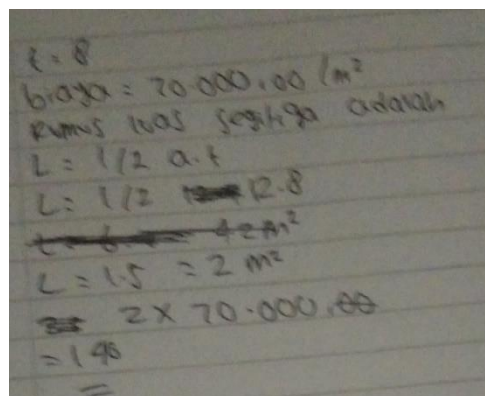 t = 8
biaya = 70.000,00 / m²
Rumus luas segitiga adalah
L = 1/2 a.t
L = 1/2 12.8
L = 1.5 = 2 m²
2 x 70.000,00
= 140
=